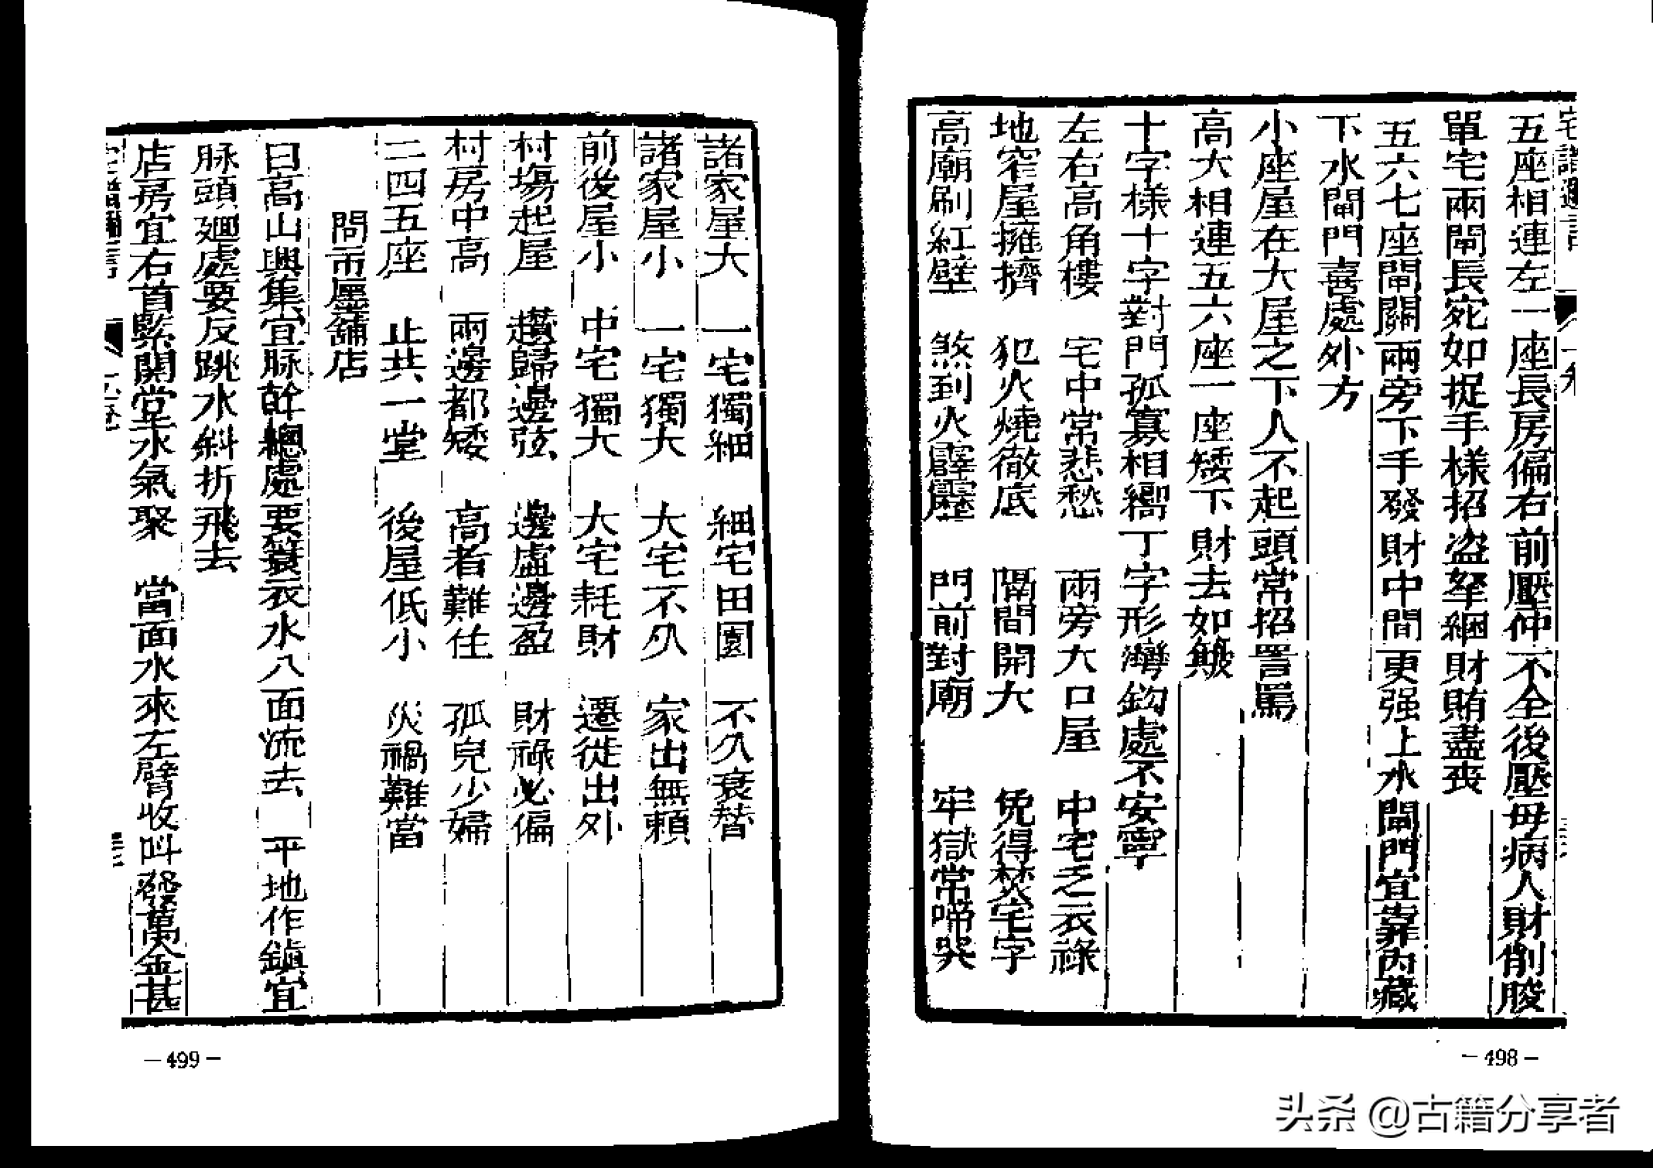 五座相連左一座長房偏右前壓仲不全後壓母病人財削朘
單宅兩閘長宛如捉手樣招人盜拏綑財賄盡喪
五六七座閘關兩旁下手發財中間更强上水閘門宜靠內藏
下水閘門喜處外方
小座屋在大屋之下人不起頭常招詈罵
高大相連五六座一座矮下財去如簸
十字樣十字對門孤寡相嚮丁字形灣鈎處不安寧
左右高角樓 宅中常悲愁 兩旁大口屋 中宅乏衣祿
地窄屋擁擠 犯火燒徹底 隔間開大 免得焚宅字
高廟刷紅壁 煞到火霹靂 門前對廟 牢獄常啼哭
－498－
諸家屋大 一宅獨細 細宅田園 不久衰替
諸家屋小 一宅獨大 大宅不久 家出無賴
前後屋小 中宅獨大 大宅耗財 遷徙出外
村塲起屋 趲歸邊弦 邊虛邊盈 財祿必偏
村房中高 兩邊都矮 高者難住 孤兒少婦
三四五座 止共一堂 後屋低小 災禍難當
問市廛舖店
曰高山興集宜脉幹總處要簑衣水八面流去 平地作鎮宜
脉頭廻處要反跳水斜折飛去
店房宜右首緊開堂水氣聚 當面水來左臂收叫發萬金甚
－499－
头条 @古籍分享者